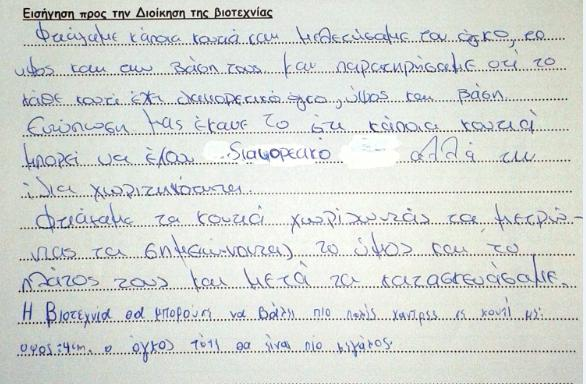 Εισήγηση προς την Διοίκηση της βιοτεχνίας
Φτιάξαμε κάποια κουτιά και μελετήσαμε τον όγκο, το
υψος και την βάση τους και παρατηρήσαμε οτι το
κάθε κουτί έχει διαφορετικό όγκο, ύψος και βάση.
Εντύπωση μας έκανε το ότι κάποια κουτιά
μπορεί να έχουν διαφορετικό αλλά την
ίδια χωριτικότητα.
Φτιάξαμε τα κουτιά χωρίζωντάς τα, μετρών-
τας τα σημειώνοντας, το ύψος και το
πλάτος τους και μετά τα κατασκευάσαμε.
Η βιοτεχνία θα μπορούσε να βάλει πιο πολλές χάντρες σε κουτί με
υψος:4cm. ο όγκος τότε θα είναι πιο μεγάλος.